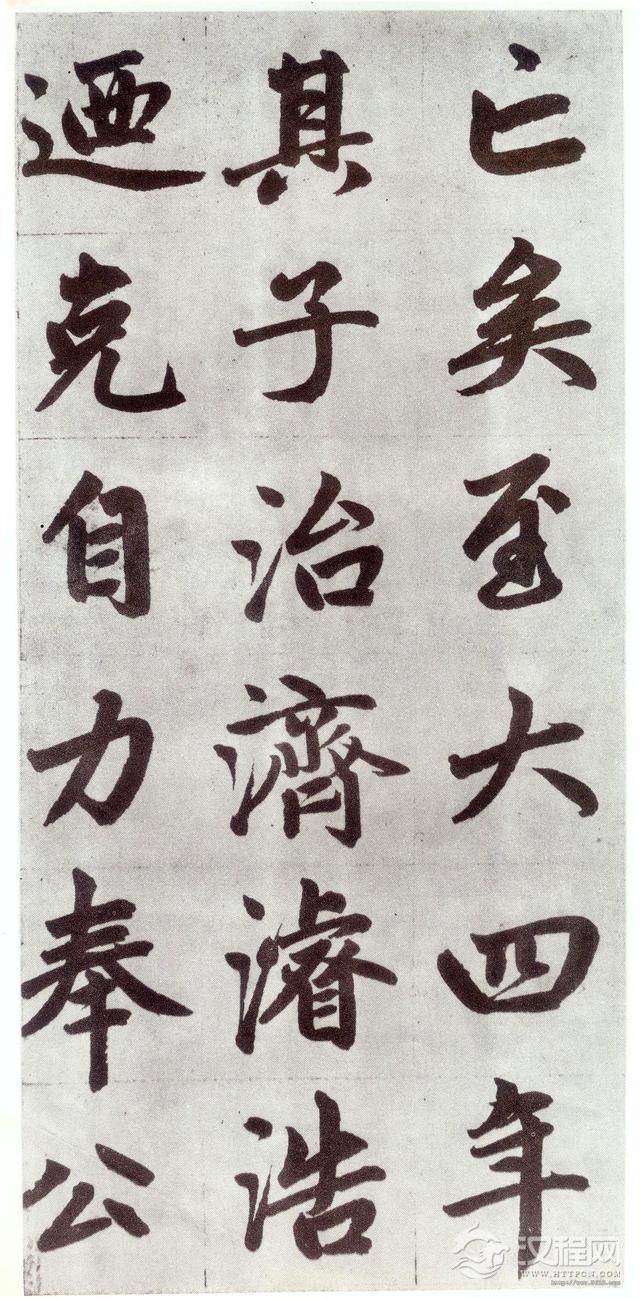 亡矣至大四年
其子治濟濬浩
迺克自力奉公
汉程网
WWW.HTTPCN.COM